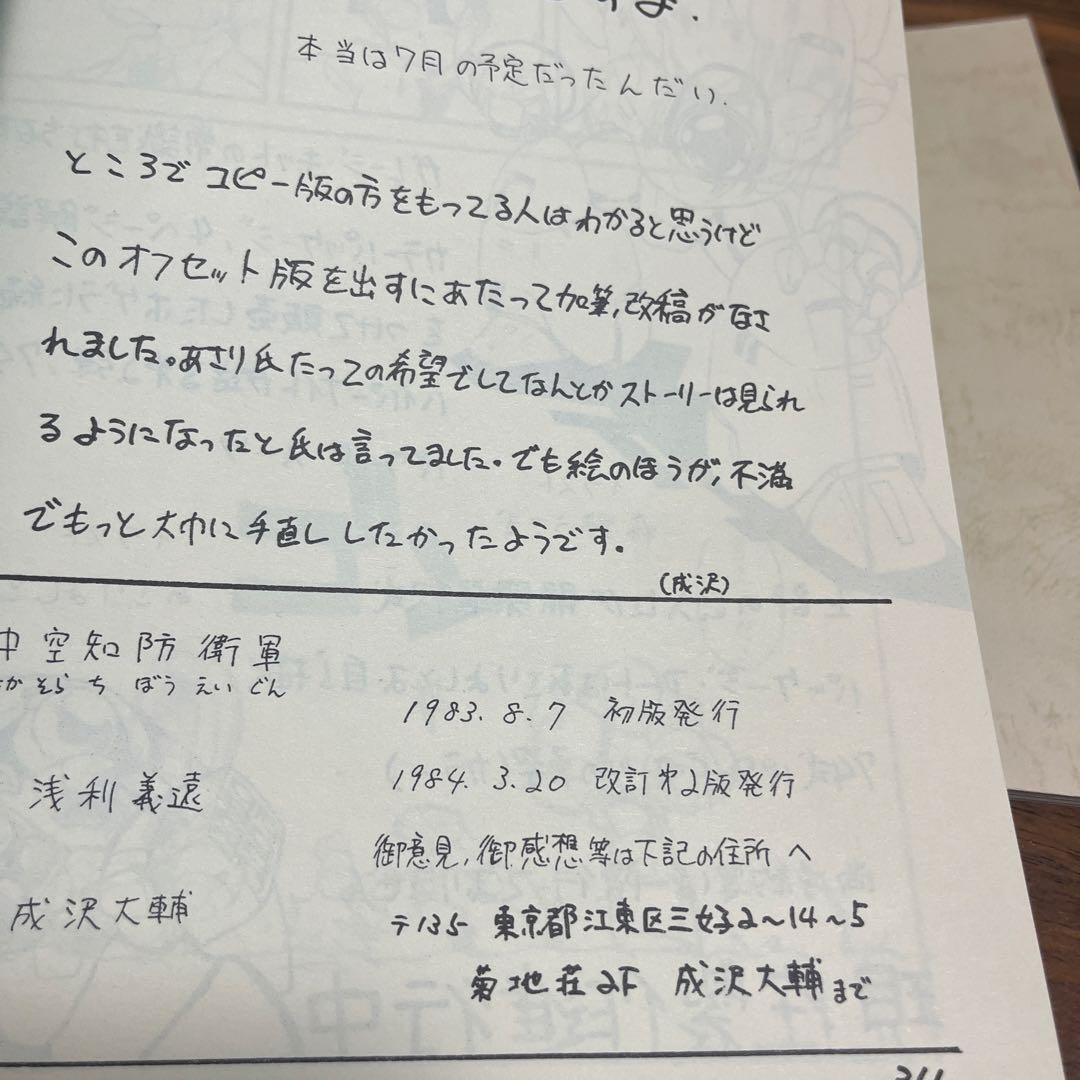 本当は7月の予定だったんだい.
ところでコピー版の方をもってる人はわかると思うけど
このオフセット版を出すにあたって加筆,改稿がなさ
れました。あさり氏たっての希望でしてなんとかストーリーは見られ
るようになったと氏は言ってました。でも絵のほうが,不満
でもっと大巾に手直ししたかったようです。
(成沢)
中空知防衛軍
かそらちぼうえいぐん
浅利義遠
成沢大輔
1983.8.7 初版発行
1984.3.20 改訂第2版発行
御意見,御感想等は下記の住所へ
〒135 東京都江東区三好2〜14〜5
菊地荘2F 成沢大輔まで